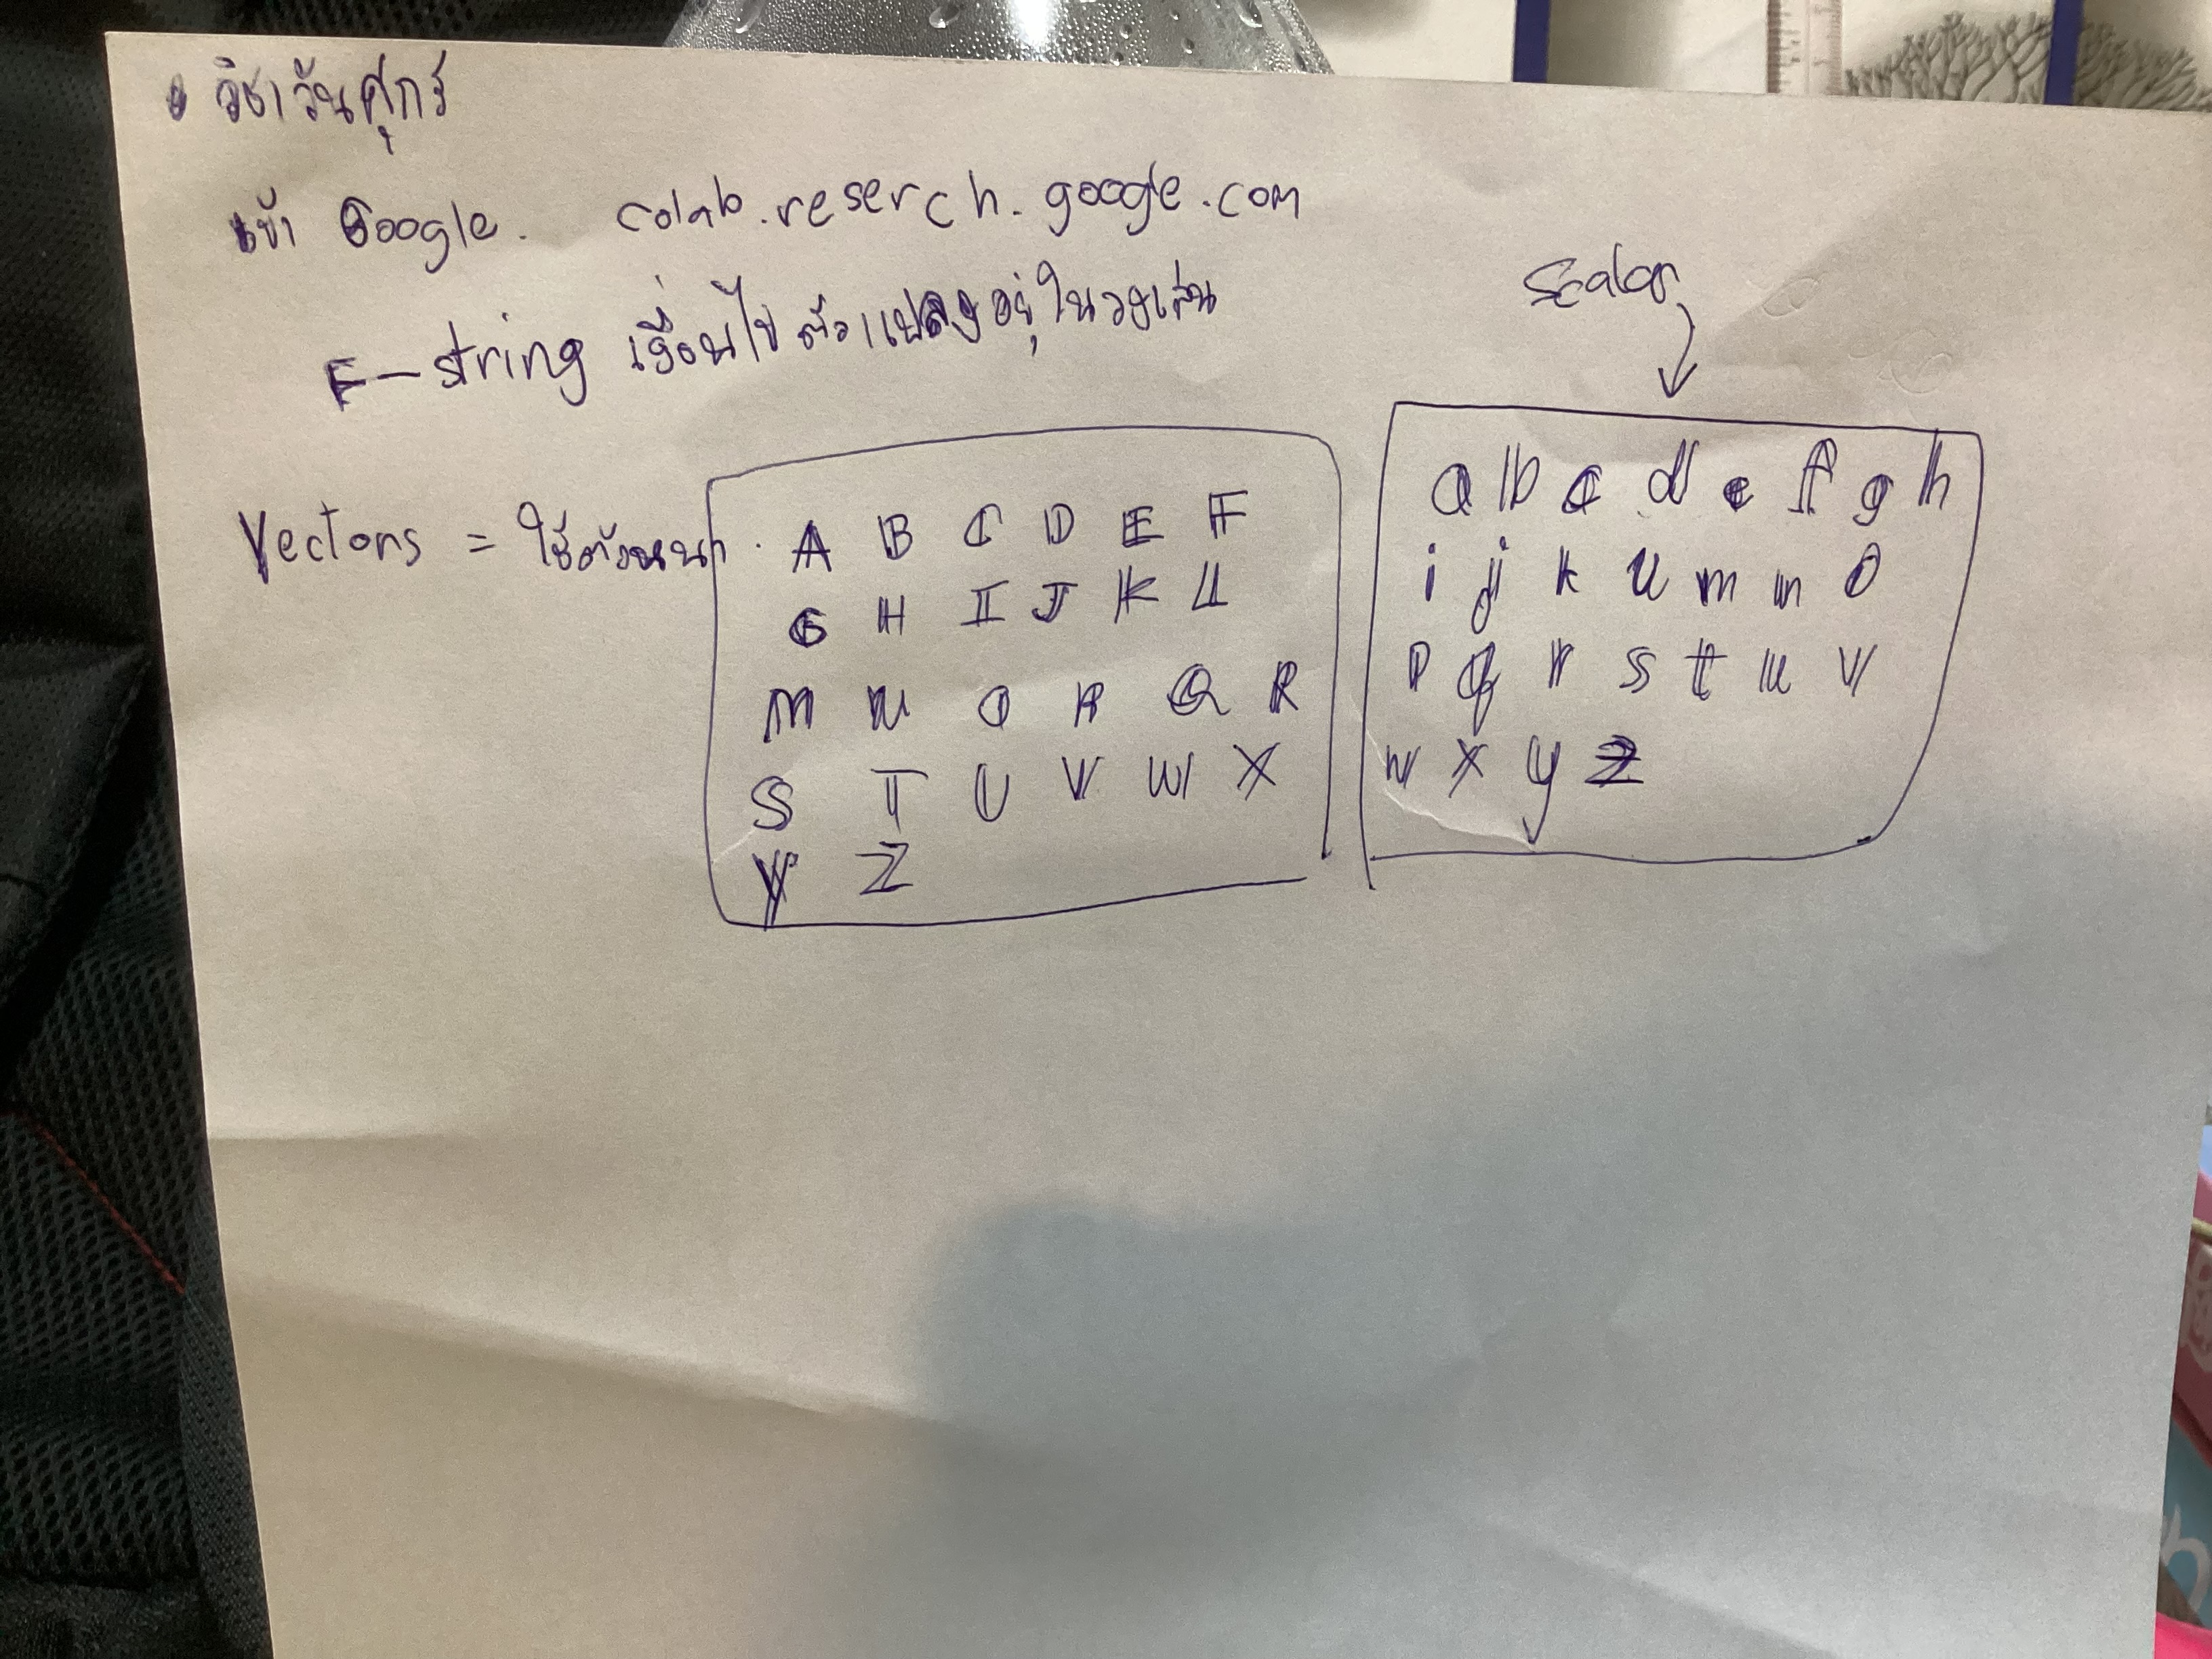 วิชาวันศุกร์
เข้า Google. colab.reserch.google.com
F-string เงื่อนไข ตัวแปลงอยู่ในวงเล็บ
Scalar
Vectors = ใช้ตัวหนา
A B C D E F
G H I J K L
M N O P Q R
S T U V W X
Y Z
a b c d e f g h
i j k l m n o
p q r s t u v
w x y z